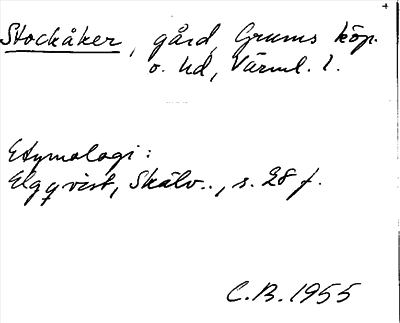 Stockåker, gård, Grums köp.
o. hd, Värml. l.
Etymologi:
Elgqvist, Skälv.., s. 28 f.
C.B. 1955